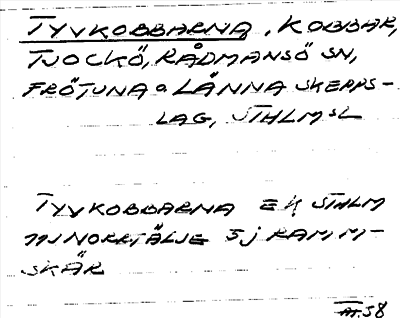 TYVKOBBARNA, KOBBAR,
TJOCKÖ, RÅDMANSÖ SN,
FRÖTUNA o LÄNNA SKEPPS-
LAG, STHLMSL
TYVKOBBARNA EK STHLM
11J NORRTÄLJE 5j RAMM-
SKÄR